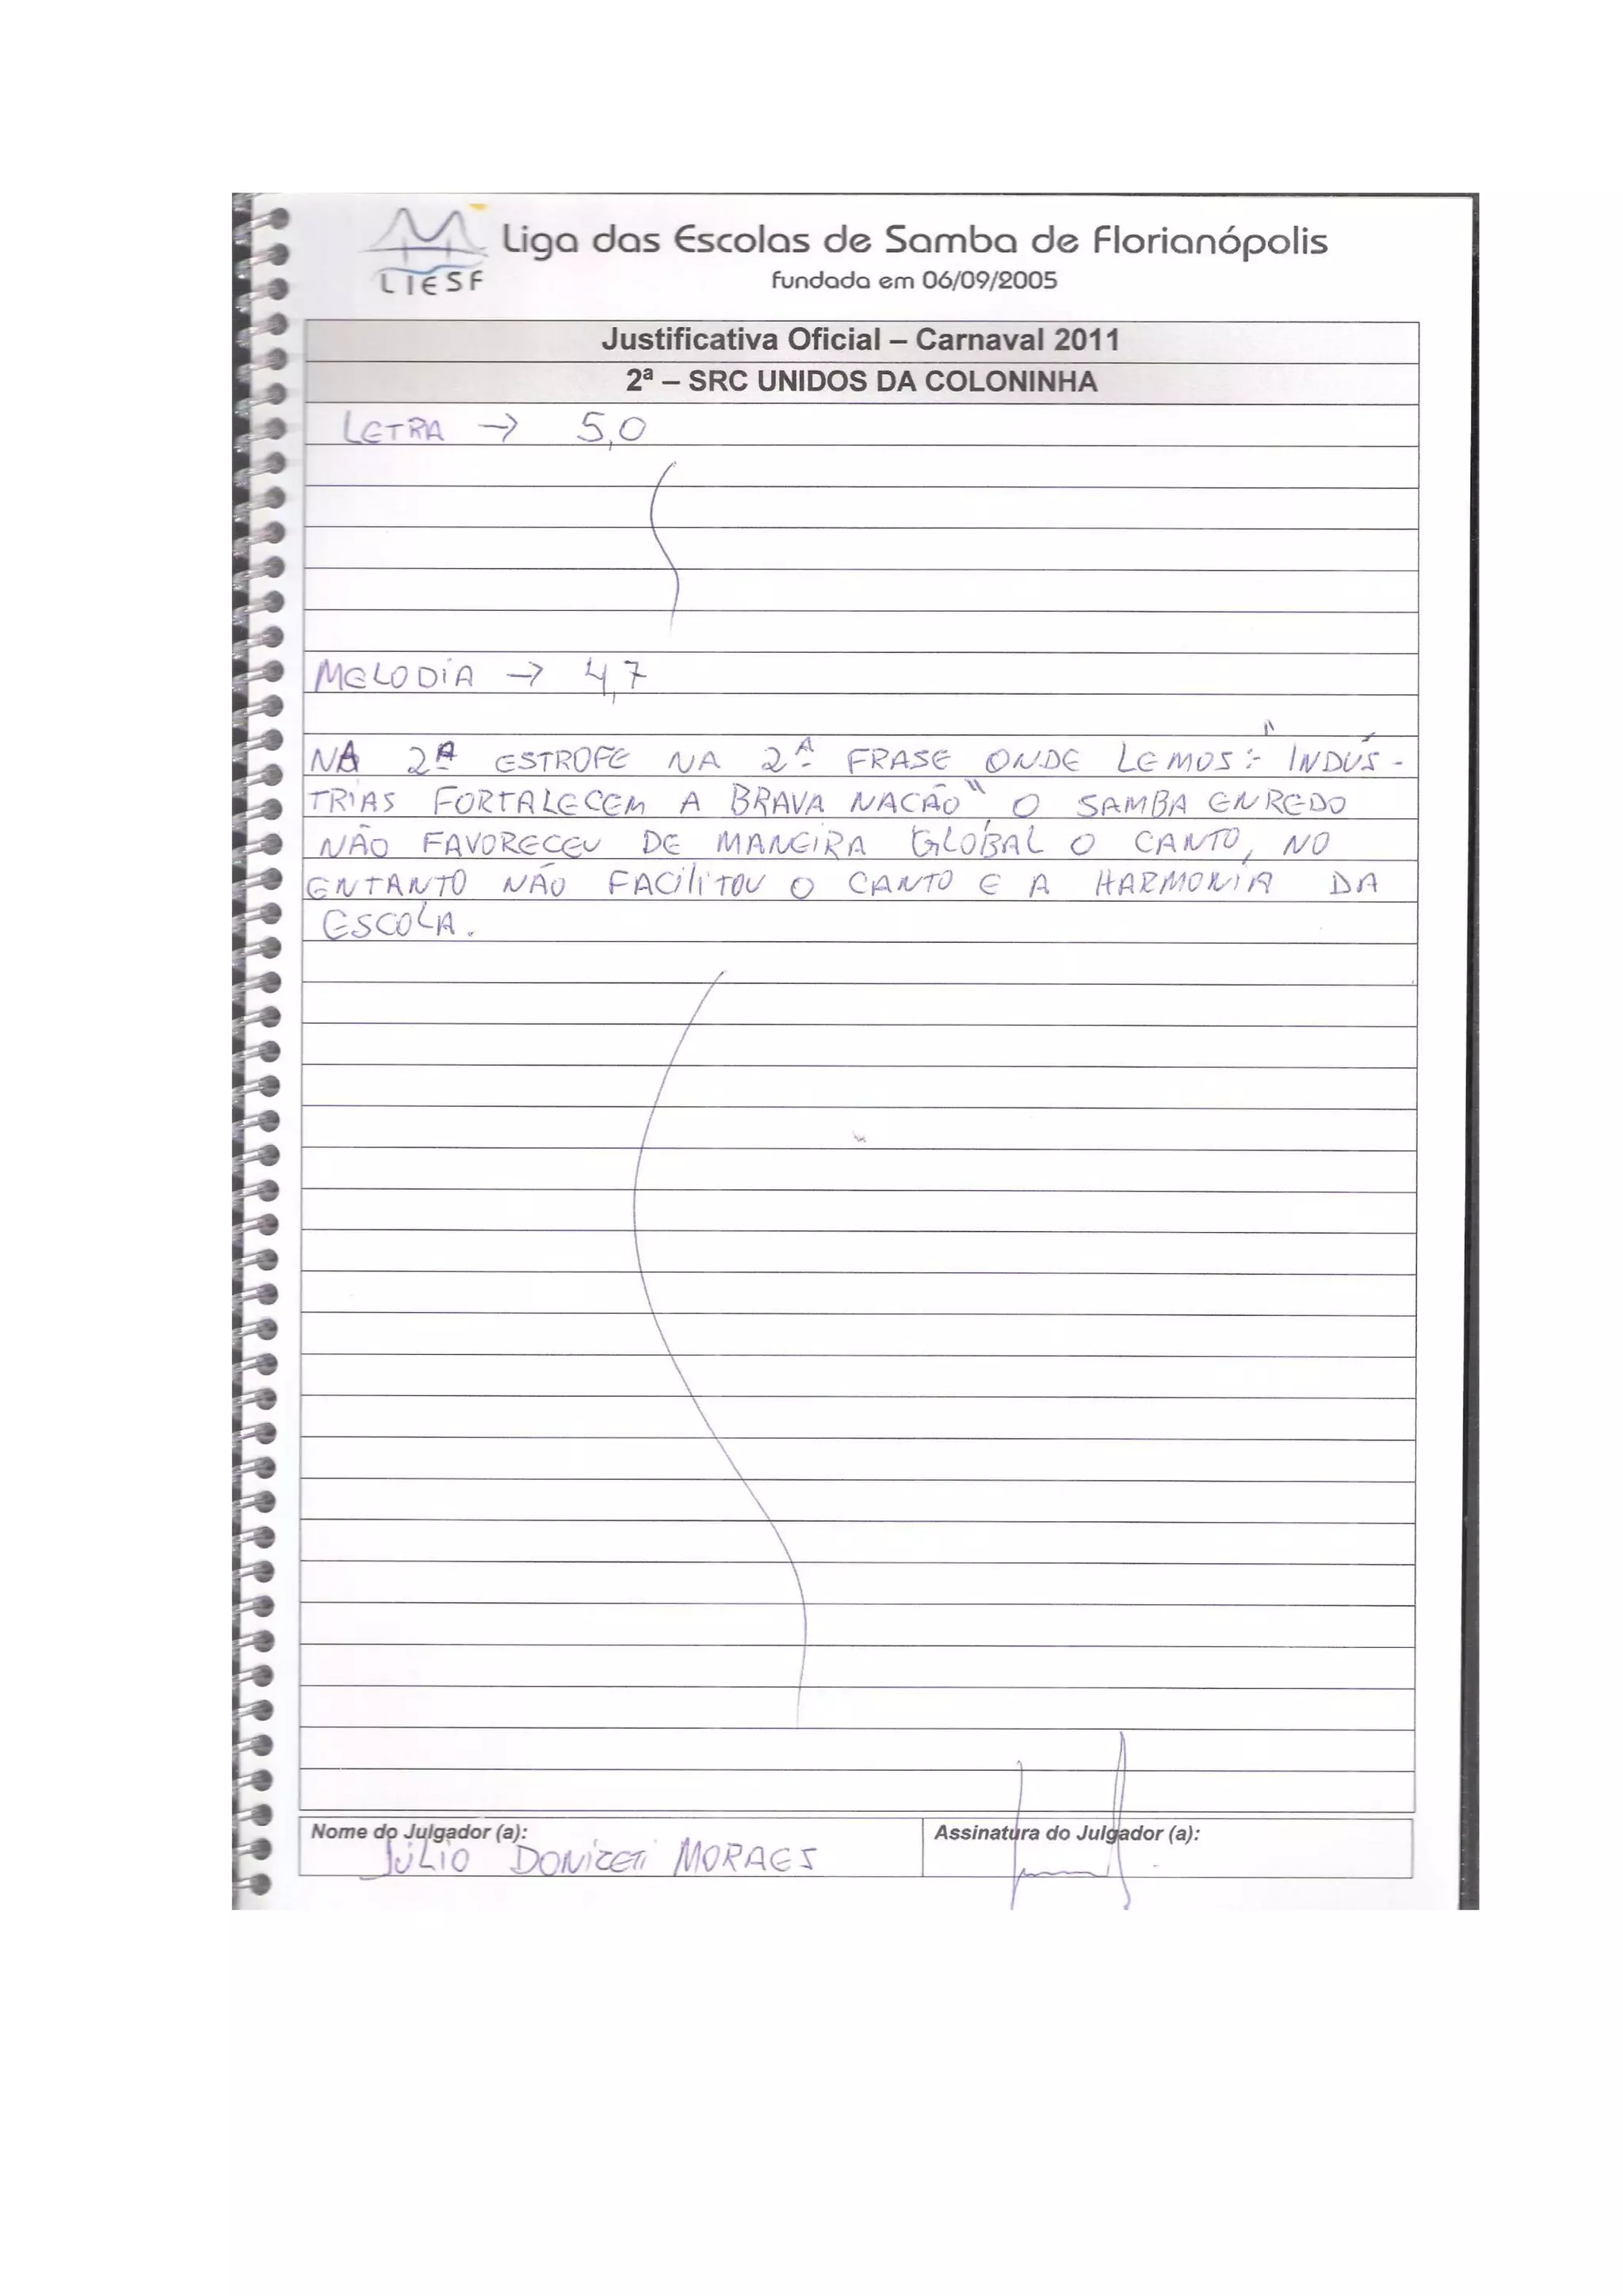 Liga das Escolas de Samba de Florianópolis
LIESF
fundada em 06/09/2005
Justificativa Oficial – Carnaval 2011
2ª – SRC UNIDOS DA COLONINHA
LETRA → 5,0
MELODIA → 4,7
NA 2ª ESTROFE NA 2ª FRASE ONDE LEMOS:- "INDÚS-
TRIAS FORTALECEM A BRAVA NAÇÃO" O SAMBA ENREDO
NÃO FAVORECEU DE MANEIRA GLOBAL O CANTO, NO
ENTANTO NÃO FACILITOU O CANTO E A HARMONIA DA
ESCOLA.
Nome do Julgador (a): Assinatura do Julgador (a):
JÚLIO DONIZETI MORAES